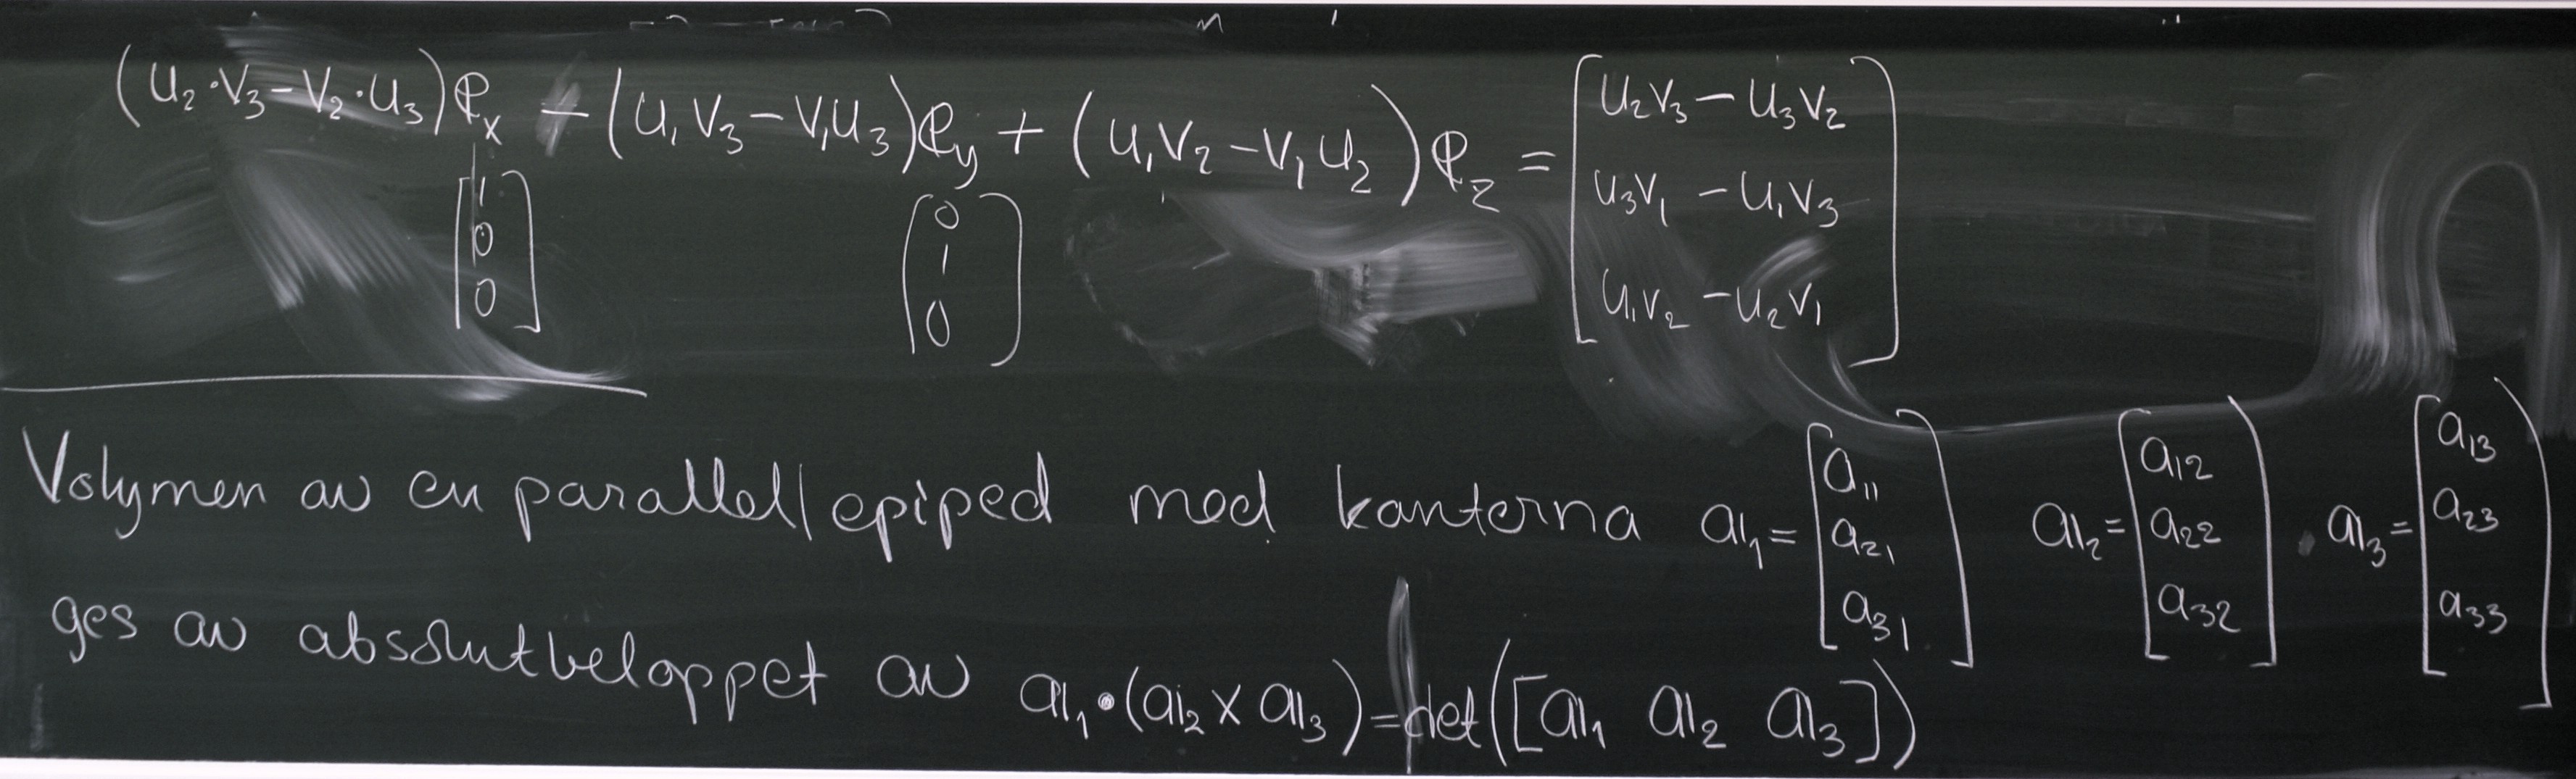 (u₂·v₃-v₂·u₃)eₓ - (u₁v₃-v₁u₃)e_y + (u₁v₂-v₁u₂)e_z = [u₂v₃-u₃v₂
u₃v₁-u₁v₃
u₁v₂-u₂v₁]
[1
0
0]
[0
1
0]
Volymen av en parallellepiped med kanterna a₁= [a₁₁ a₂₁ a₃₁] a₂= [a₁₂ a₂₂ a₃₂] . a₃= [a₁₃ a₂₃ a₃₃]
ges av absolutbeloppet av a₁•(a₂×a₃)=det([a₁ a₂ a₃])